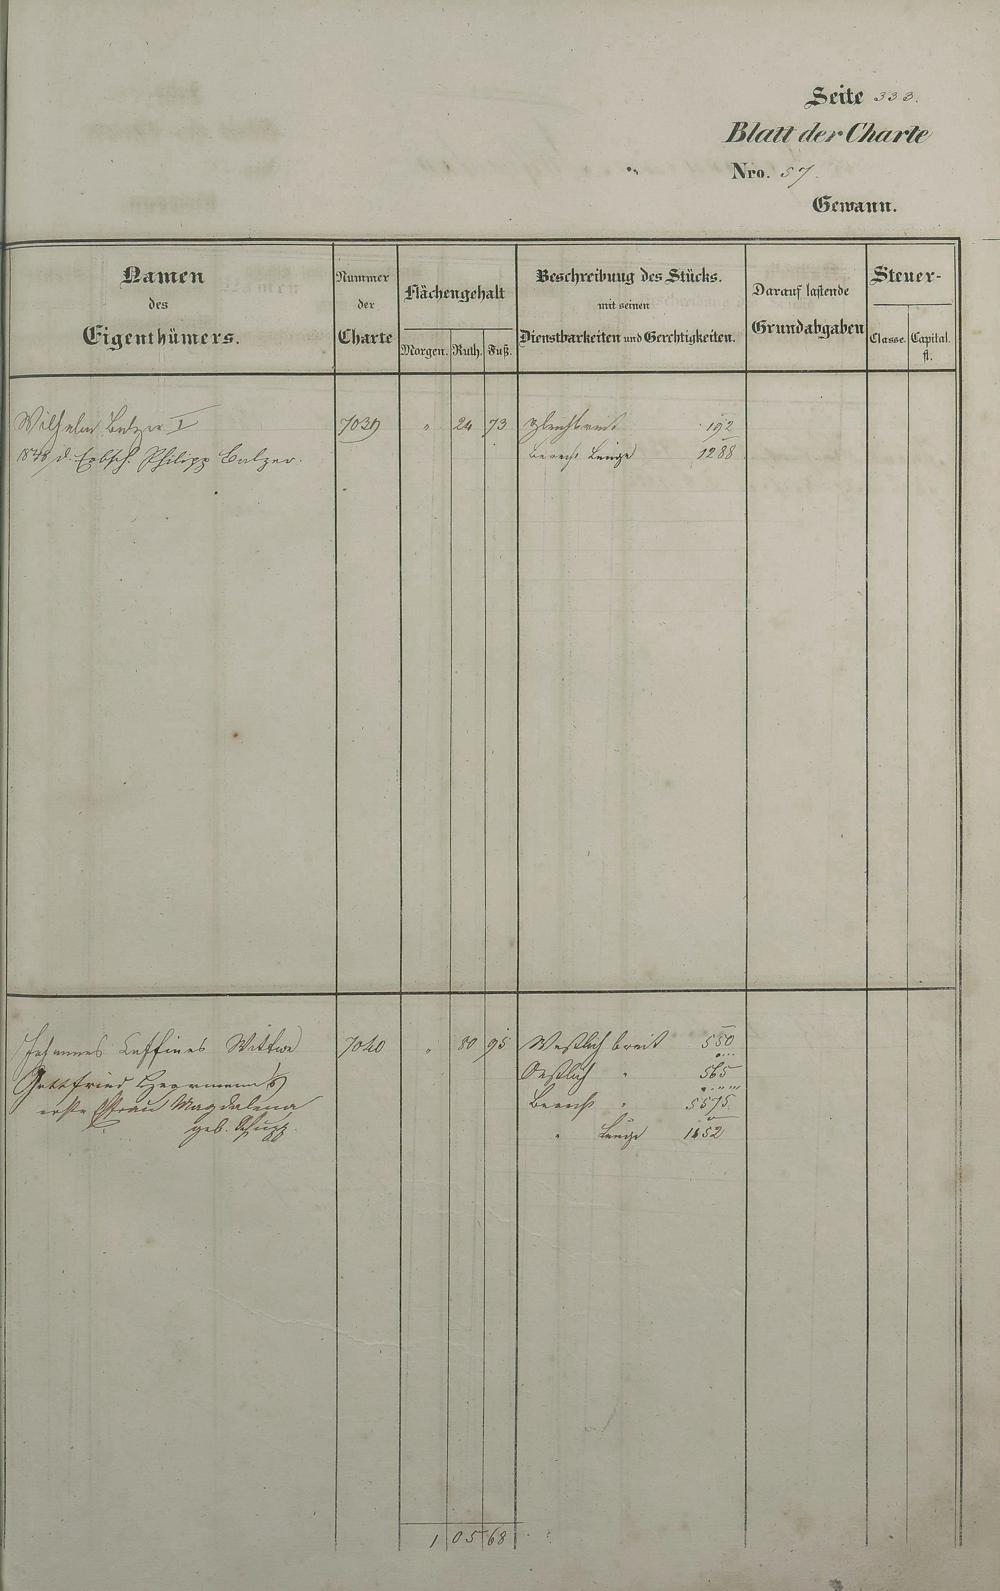 Seite 333.
Blatt der Charte
Nro. 57.
Gewann.
Namen
des
Eigenthümers.
Nummer
der
Charte
Flächengehalt
Morgen. Ruth. Fuß.
Beschreibung des Stücks.
mit seinen
Dienstbarkeiten und Gerechtigkeiten.
Darauf lastende
Grundabgaben
Steuer-
Classe. Capital.
fl.
Wilhelm Balzer I 7039 " 24 73 Gleichbreit 192
1848 d. Erbsch. Philipp Balzer. Berech Länge 1288
Johannes Wittwe 7040 " 80 95 Westlich breit 550
Gottfried Oestlich " 565
erste Frau Magdalena Berech " 5575
geb. " Länge 1452
1 05 68